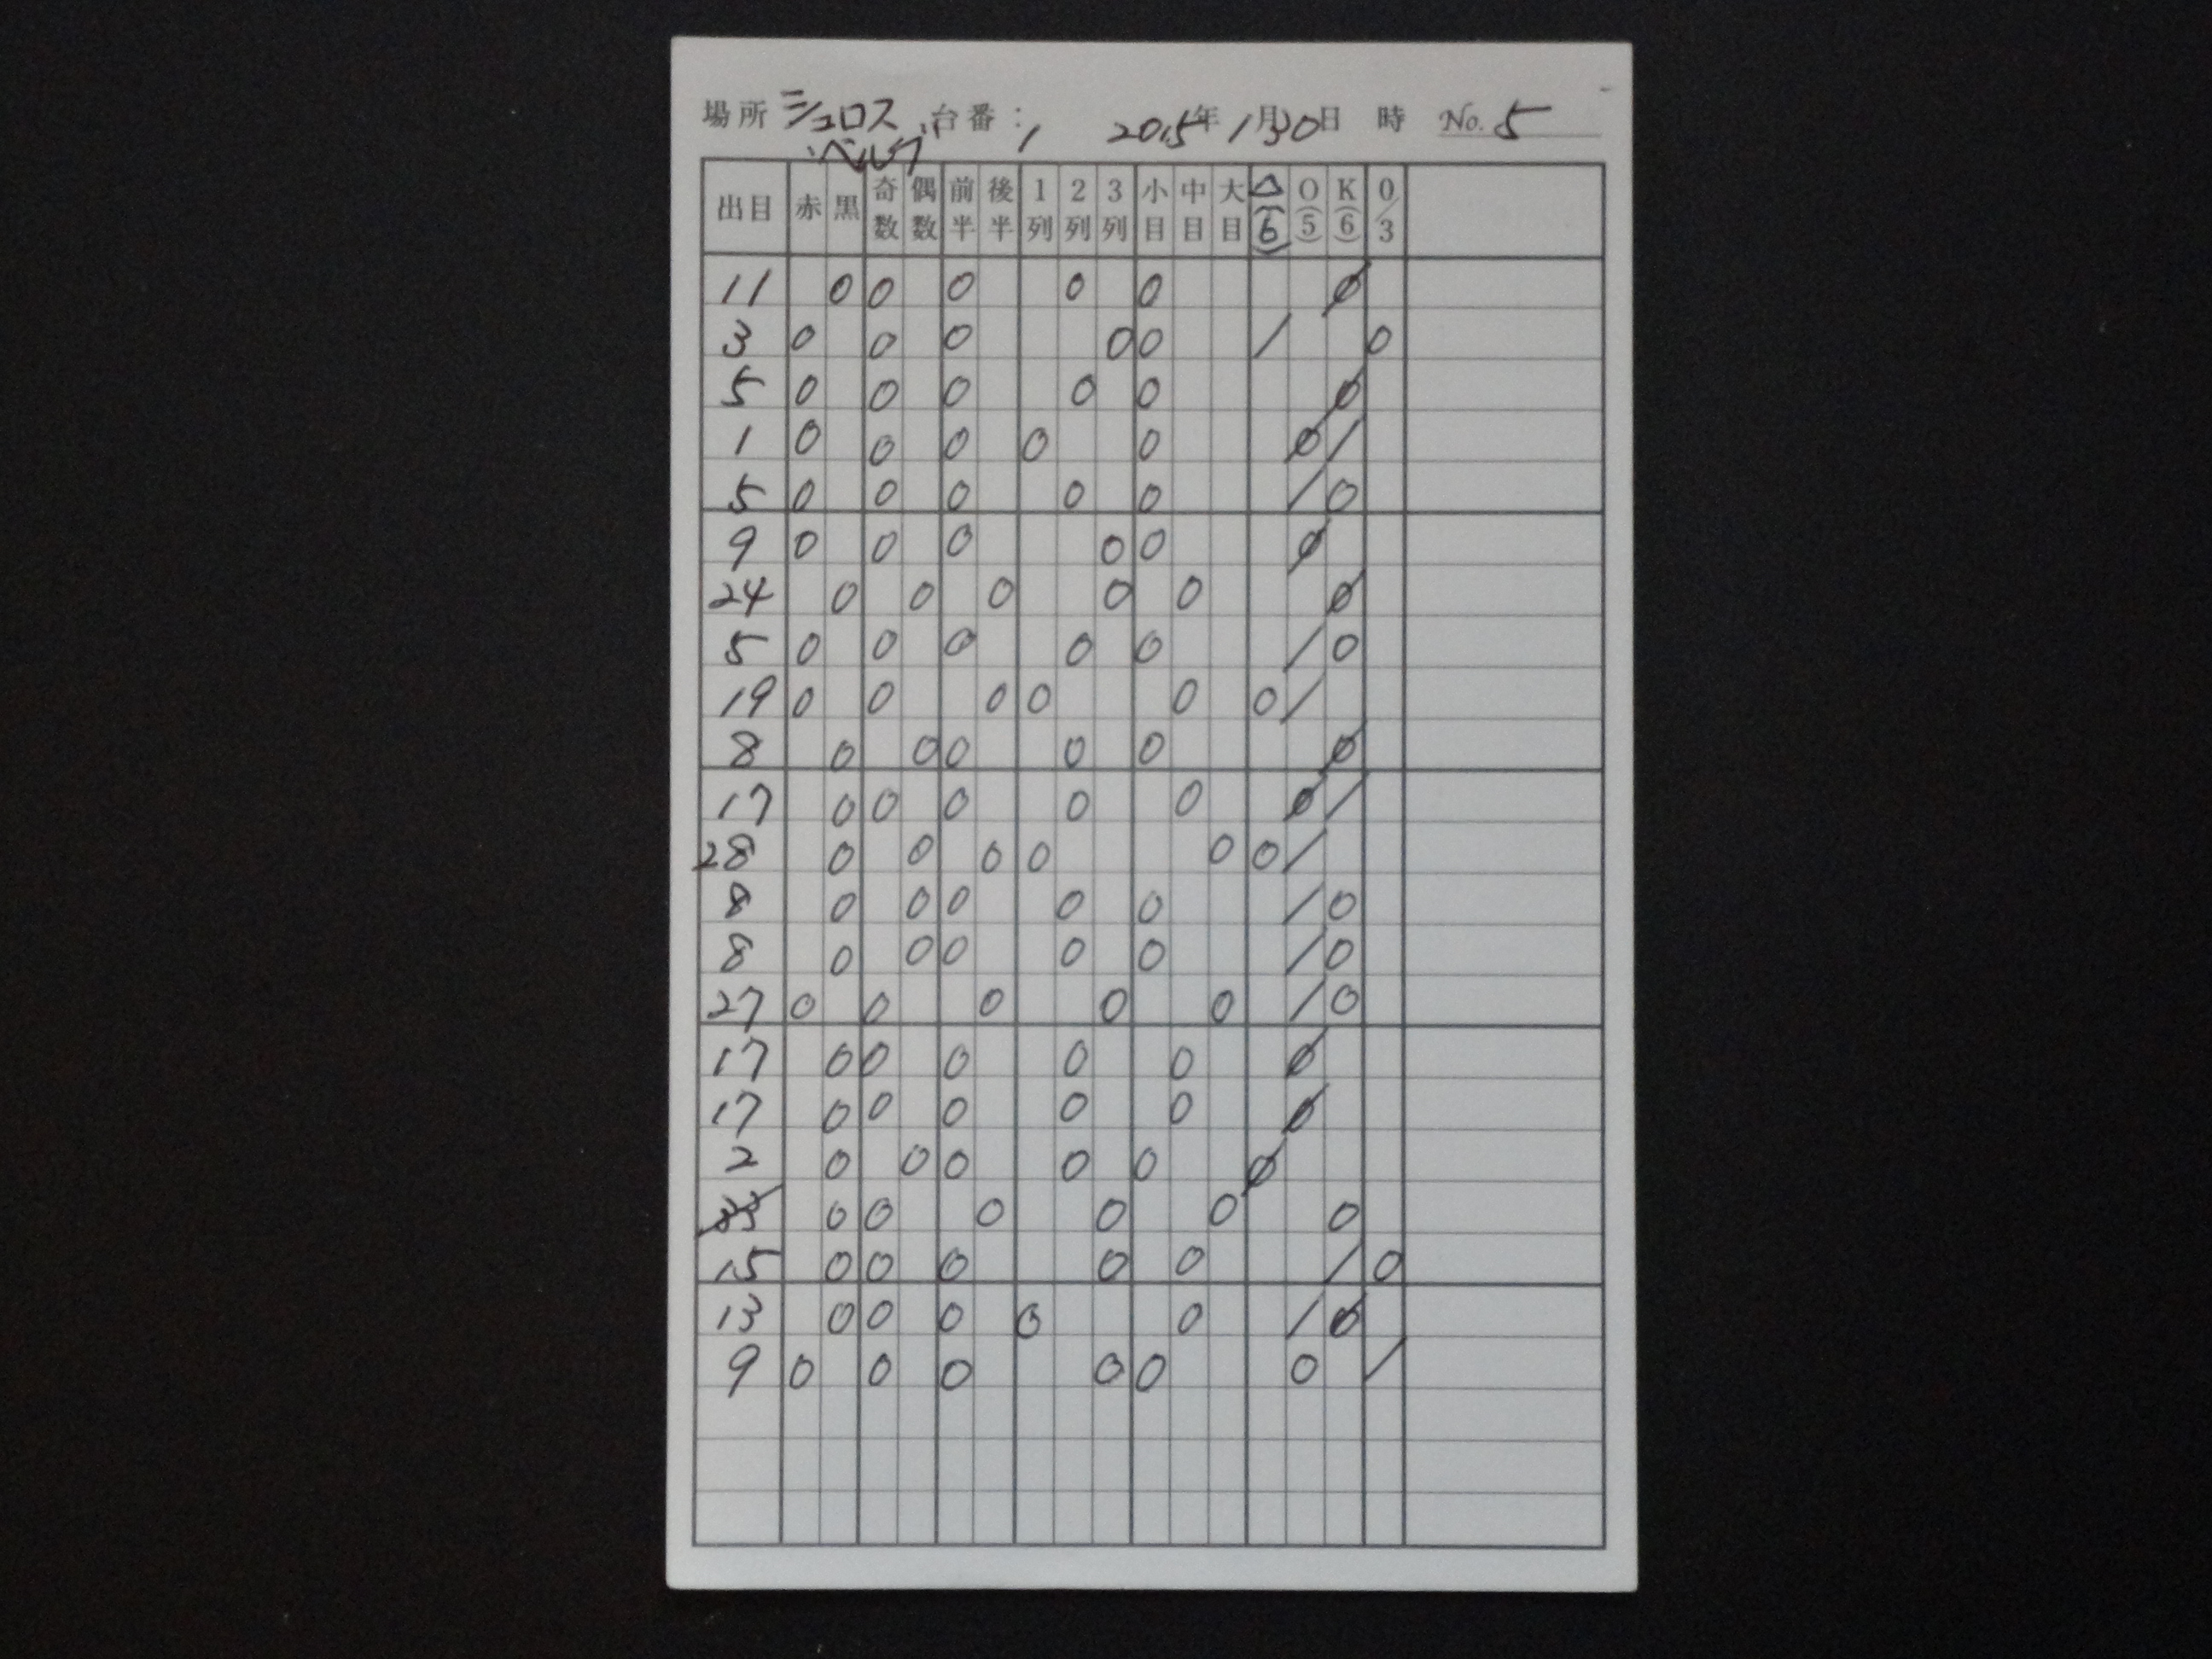 場所 シュロス 台番: 1 2015年 1月30日 時 No. 5
ベルク
出目 赤 黒 奇数 偶数 前半 後半 1列 2列 3列 小目 中目 大目 △(6) O(5) K(6) 0/3
11 0 0 0 0 0 Ø
3 0 0 0 0 0 / 0
5 0 0 0 0 0 Ø
1 0 0 0 0 0 Ø /
5 0 0 0 0 0 / 0
9 0 0 0 0 0 Ø
24 0 0 0 0 0 Ø
5 0 0 0 0 0 / 0
19 0 0 0 0 0 0 /
8 0 0 0 0 0 Ø
17 0 0 0 0 0 Ø /
28 0 0 0 0 0 0 /
8 0 0 0 0 0 / 0
8 0 0 0 0 0 / 0
27 0 0 0 0 0 / 0
17 0 0 0 0 0 Ø
17 0 0 0 0 0 Ø
2 0 0 0 0 0 Ø
33 0 0 0 0 0 0
15 0 0 0 0 0 / 0
13 0 0 0 0 0 / Ø
9 0 0 0 0 0 0 /